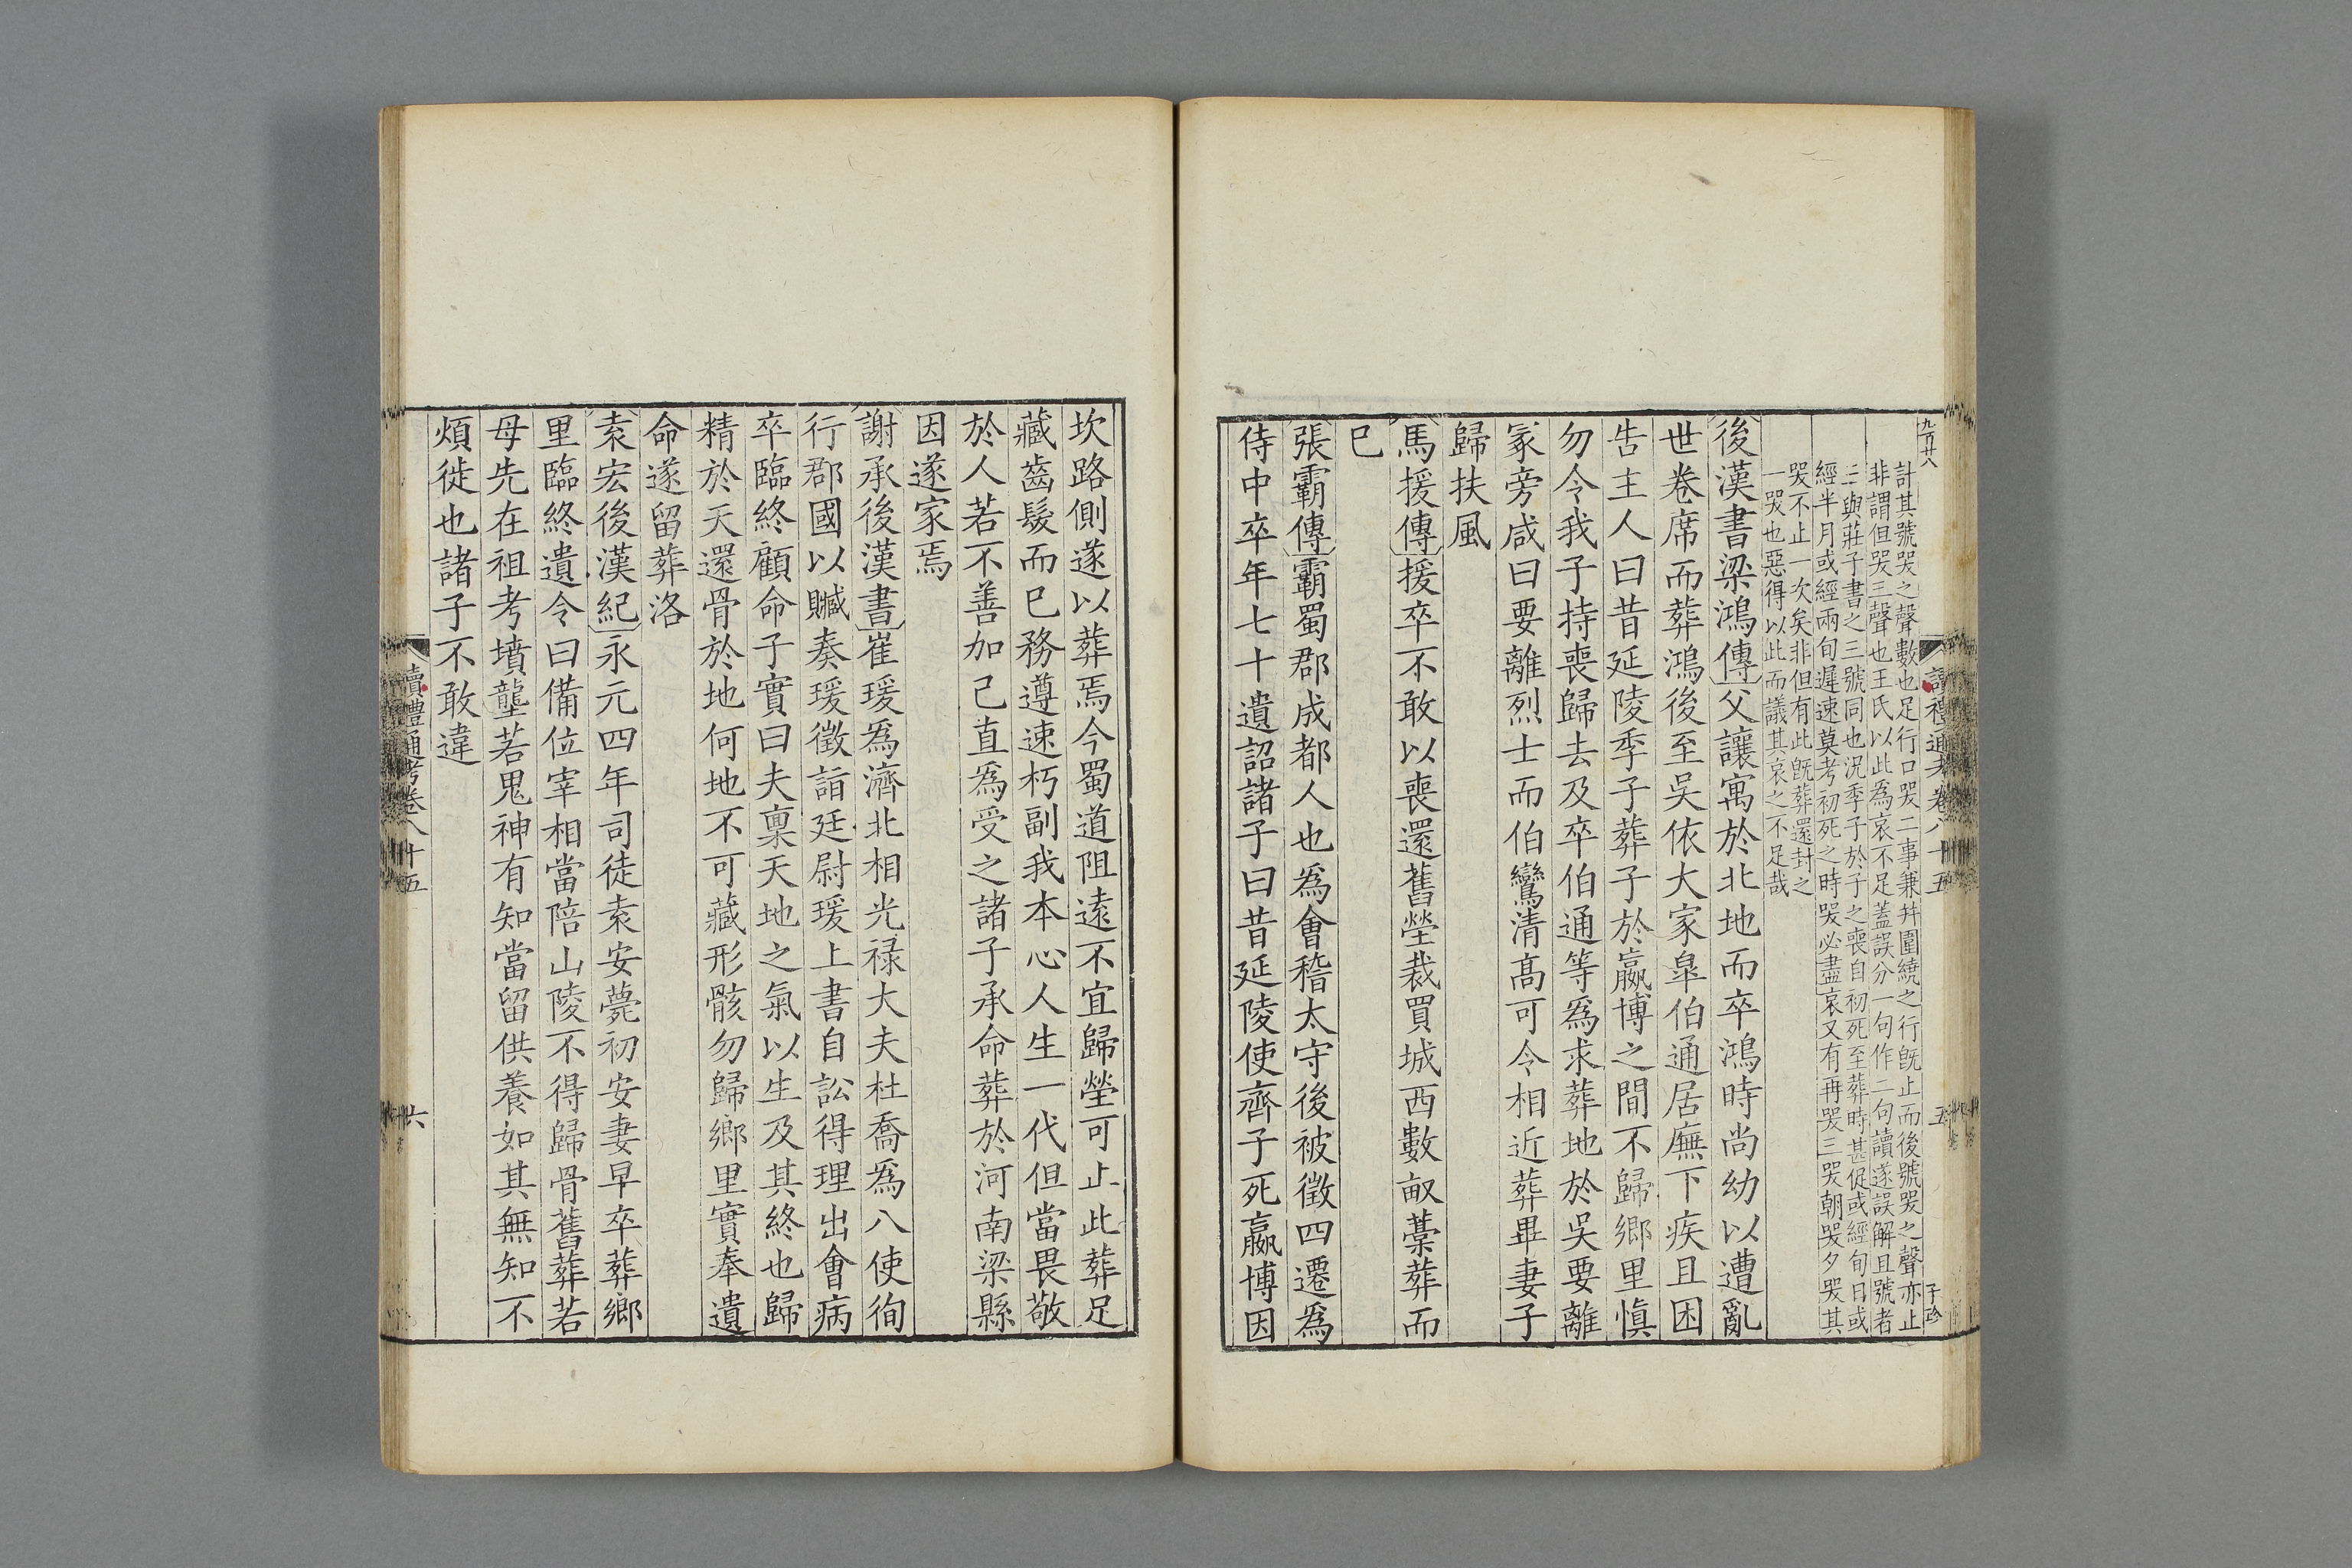 九百廿八
讀禮通考卷八十五
五
子珍
計其號哭之聲數也足行口哭二事兼幷圍繞之行旣止而後號哭之聲亦止
非謂但哭三聲也王氏以此爲哀不足蓋誤分一句作二句讀遂誤解且號者
三與莊子書之三號同也況季子於子之喪自初死至葬時甚促或經旬日或
經半月或經兩旬遲速莫考初死之時哭必盡哀又有再哭三哭朝哭夕哭其
哭不止一次矣非但有此旣葬還封之
一哭也惡得以此而議其哀之不足哉
後漢書梁鴻傳父讓寓於北地而卒鴻時尚幼以遭亂
世卷席而葬鴻後至吳依大家臯伯通居廡下疾且困
告主人曰昔延陵季子葬子於嬴博之間不歸鄉里愼
勿令我子持喪歸去及卒伯通等爲求葬地於吳要離
冢旁咸曰要離烈士而伯鸞清高可令相近葬畢妻子
歸扶風
馬援傳援卒不敢以喪還舊塋裁買城西數畝藁葬而
已
張霸傳霸蜀郡成都人也爲會稽太守後被徵四遷爲
侍中卒年七十遺詔諸子曰昔延陵使齊子死嬴博因
坎路側遂以葬焉今蜀道阻遠不宜歸塋可止此葬足
藏齒髮而已務遵速朽副我本心人生一代但當畏敬
於人若不善加己直爲受之諸子承命葬於河南梁縣
因遂家焉
謝承後漢書崔瑗爲濟北相光祿大夫杜喬爲八使徇
行郡國以贓奏瑗徵詣廷尉瑗上書自訟得理出會病
卒臨終顧命子實曰夫稟天地之氣以生及其終也歸
精於天還骨於地何地不可藏形骸勿歸鄉里實奉遺
命遂留葬洛
袁宏後漢紀永元四年司徒袁安薨初安妻早卒葬鄉
里臨終遺令曰備位宰相當陪山陵不得歸骨舊葬若
母先在祖考墳壟若鬼神有知當留供養如其無知不
煩徙也諸子不敢違
讀禮通考卷八十五
六